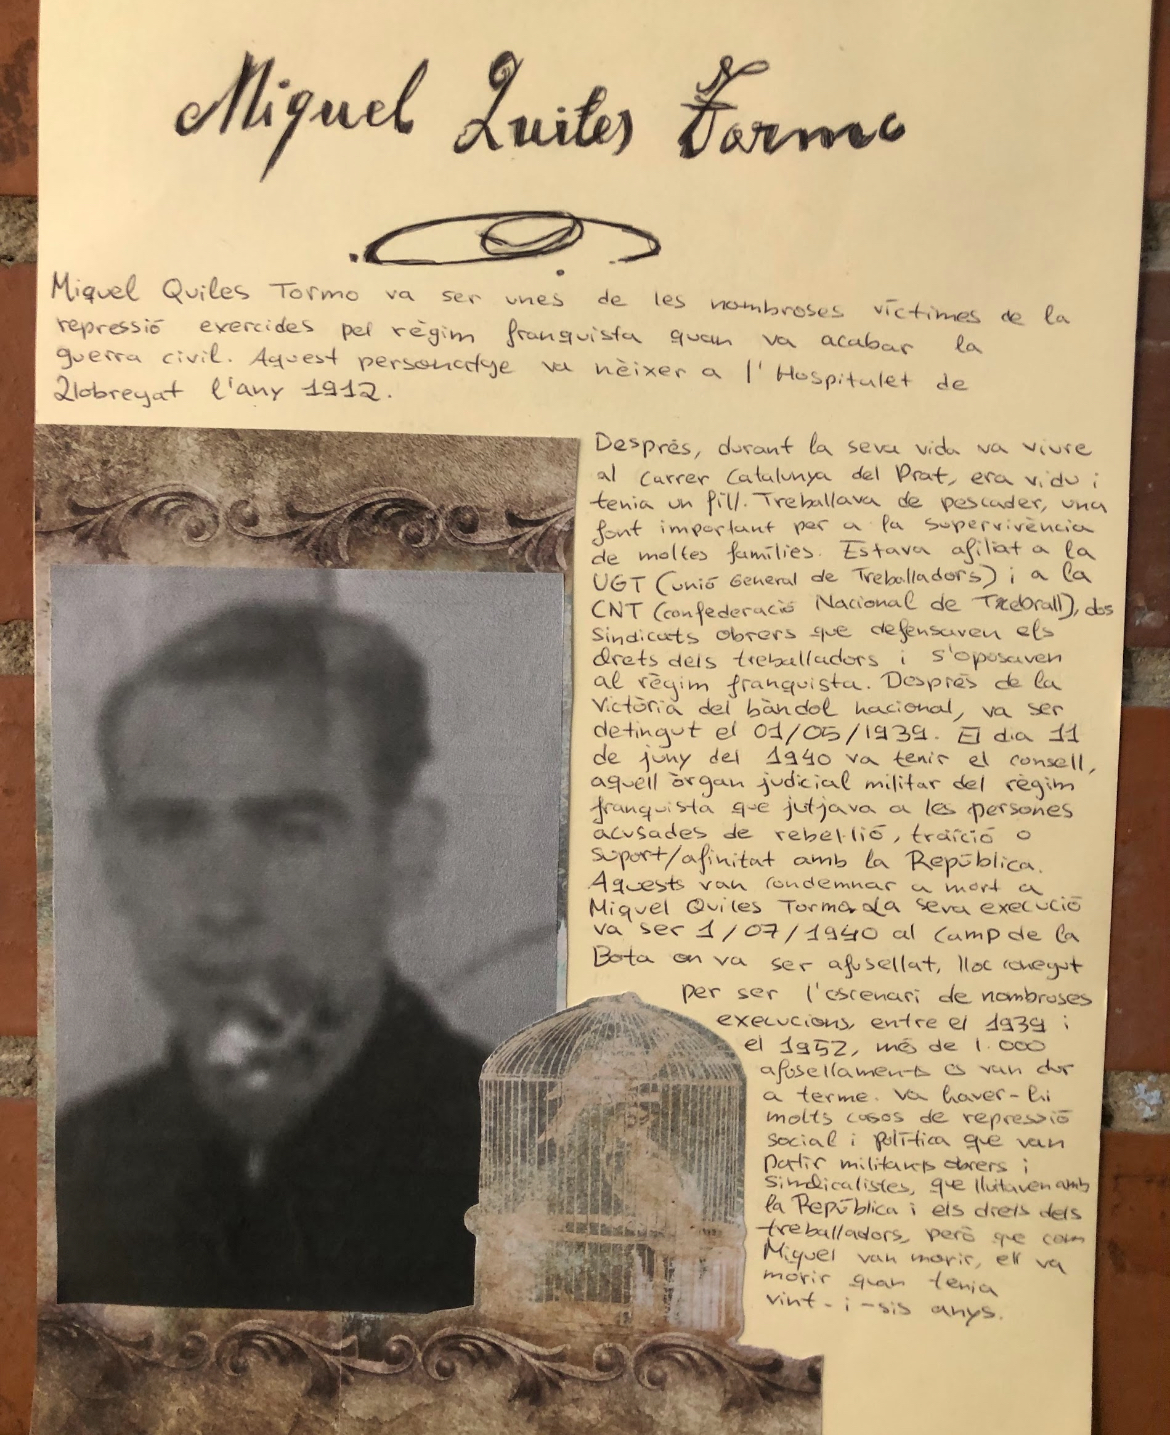 Miquel Quiles Tormo
Miquel Quiles Tormo va ser unes de les nombroses víctimes de la
repressió exercides pel règim franquista quan va acabar la
guerra civil. Aquest personatge va nèixer a l'Hospitalet de
Llobregat l'any 1912.
Després, durant la seva vida va viure
al carrer Catalunya del Prat, era vidu i
tenia un fill. Treballava de pescader, una
font important per a la supervivència
de moltes famílies. Estava afiliat a la
UGT (unió General de Treballadors) i a la
CNT (confederació Nacional de), dos
sindicats obrers que defensaven els
drets dels treballadors i s'oposaven
al règim franquista. Després de la
victòria del bàndol nacional, va ser
detingut el 01/05/1939. El dia 11
de juny del 1940 va tenir el consell,
aquell òrgan judicial militar del règim
franquista que jutjava a les persones
acusades de rebel·lió, traïció o
suport/afinitat amb la República.
Aquests van condemnar a mort a
Miquel Quiles Tormo. La seva execució
va ser 1/07/1940 al Camp de la
Bota on va ser afusellat, lloc conegut
per ser l'escenari de nombroses
execucions, entre el 1939 i
el 1952, més de 1.000
afusellaments es van dur
a terme. Va haver-hi
molts casos de repressió
social i política que van
patir militants obrers i
sindicalistes, que lluitaven amb
la República i els drets dels
treballadors, però que com
Miquel van morir, ell va
morir quan tenia
vint-i-sis anys.